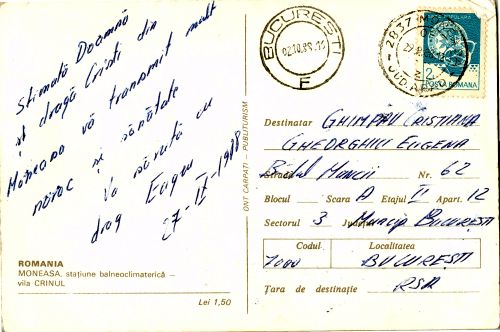 Stimată Doamnă
și dragă Cristi din
Moneasa vă transmit mult
noroc și sănătate
Vă sărută cu
drag Eugen
27-IX-1988
ROMANIA
MONEASA. stațiune balneoclimaterică –
vila CRINUL
Lei 1,50
ONT CARPATI - PUBLITURISM
BUCUREȘTI
02.10.88
F
2837
POSTA ROMANA
Destinatar GHIMPĂU CRISTIANA
GHEORGHIU EUGENA
Bdul Muncii Nr. 62
Blocul Scara A Etajul II Apart. 12
Sectorul 3 Județul Municip. BUCUREȘTI
Codul Localitatea
7000 BUCUREȘTI
Țara de destinație RSR